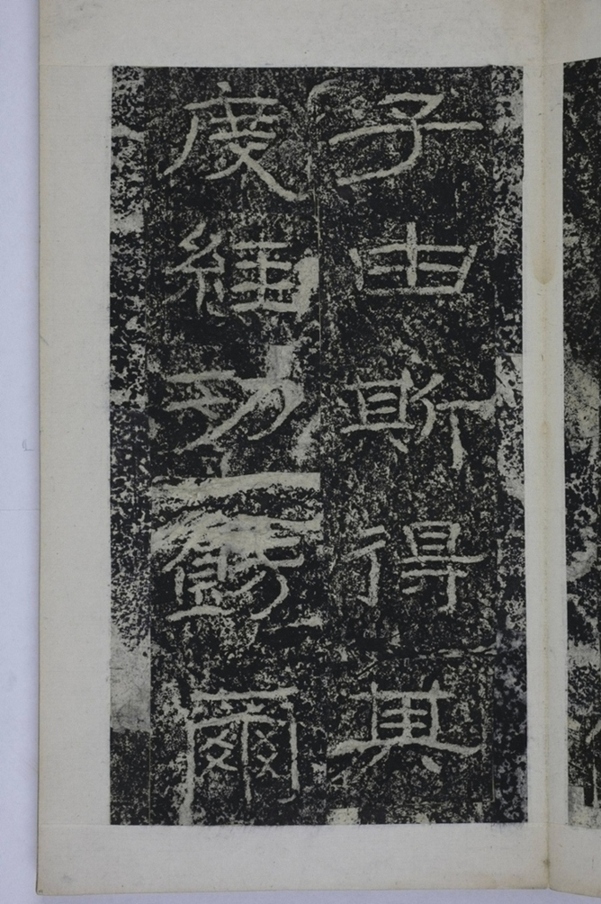 子由斯得其
度經功飭爾